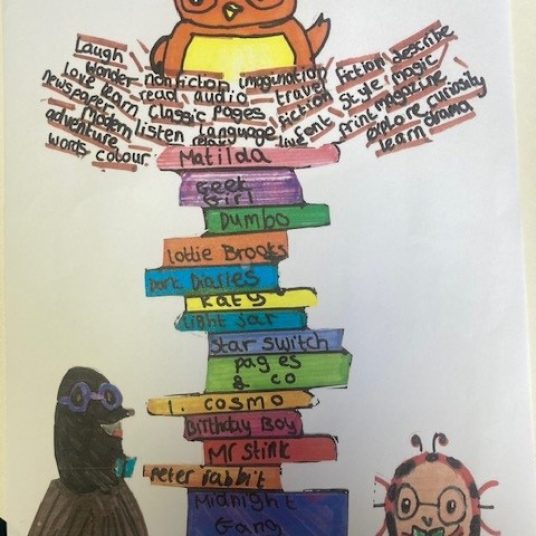 Laugh
Wonder nonfiction imagination fiction describe
Love learn read audio travel Style magic
newspaper classic pages fiction print magazine
Modern listen language font explore curiosity
adventure relate live learn drama
words colour
Matilda
Geek
Girl
Dumbo
Lottie Brooks
Dork Diaries
Katy
Light Jar
Star Switch
pages
& co
I. COSMO
Birthday Boy
Mr Stink
Peter rabbit
Midnight
Gang